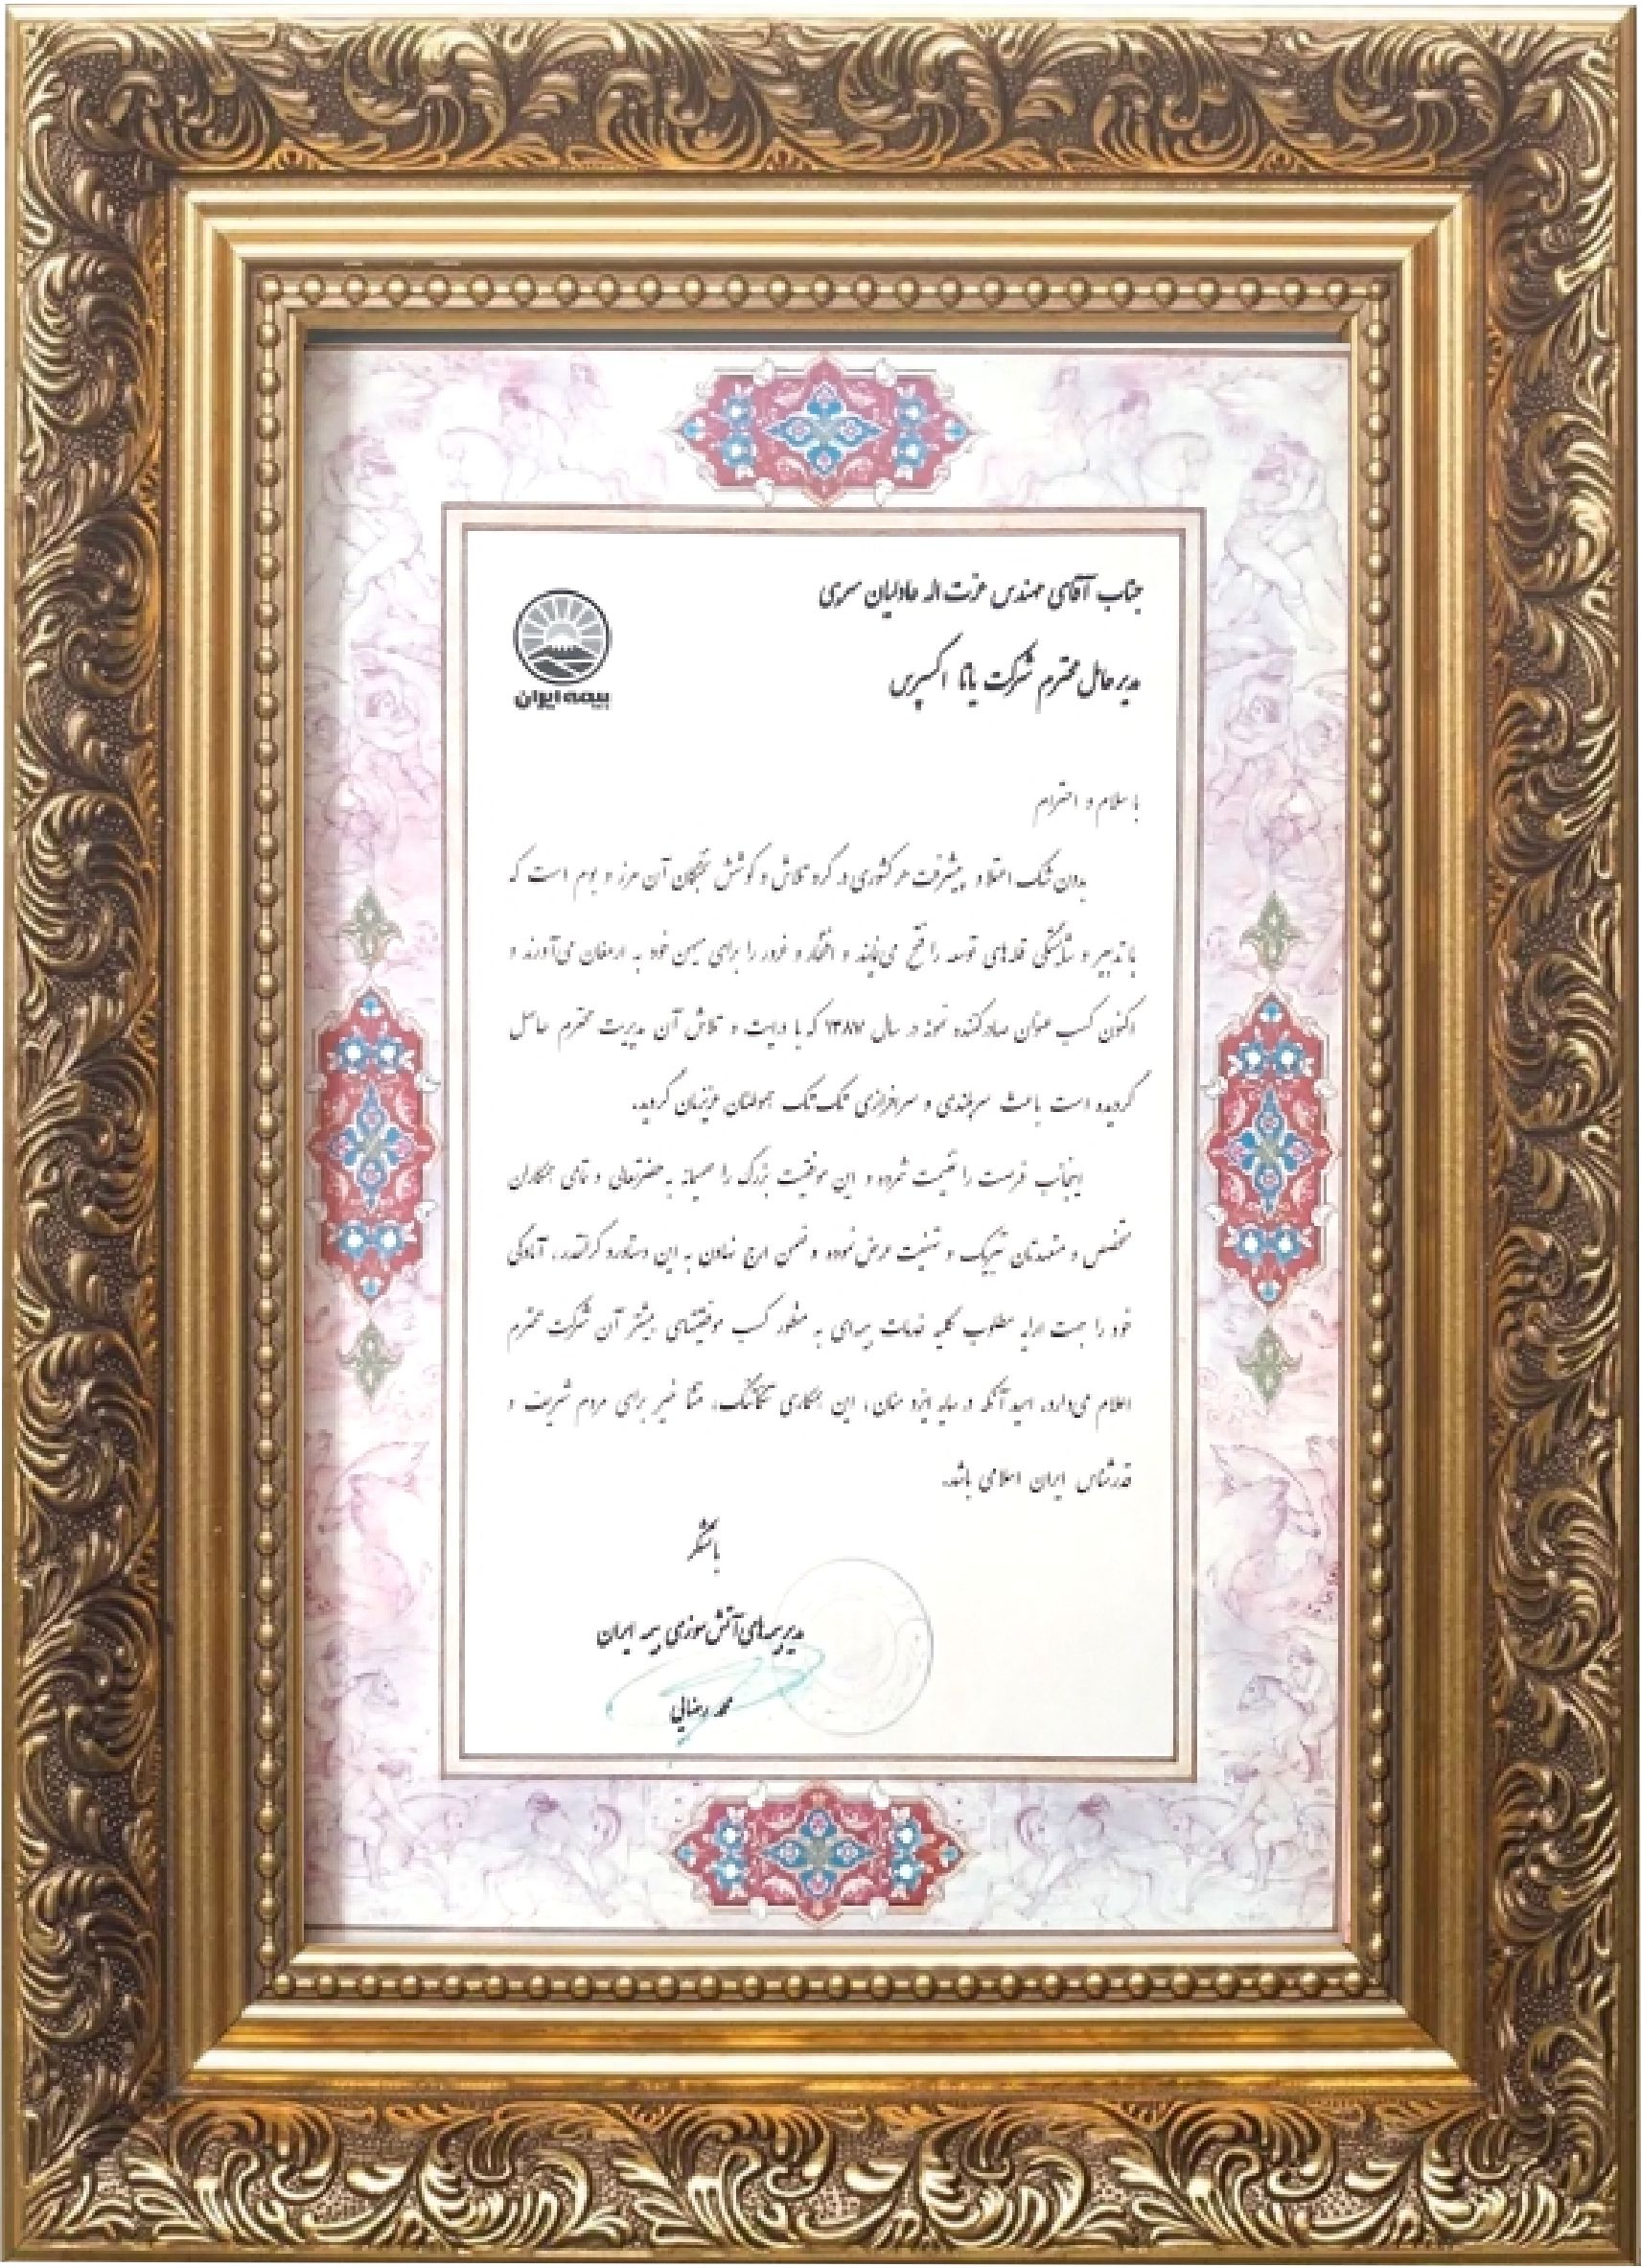 جناب آقای مهندس عزت اله عادلیان سری
مدیر عامل محترم شرکت یانا اکسپرس
بیمه ایران
با سلام و احترام
بدون شک اعتلا و پیشرفت هر کشوری در گرو تلاش و کوشش نخبگان آن مرز و بوم است که
با تدبیر و شایستگی قله‌های توسعه را فتح می‌نمایند و افتخار و غرور را برای میهن خود به ارمغان می‌آورند و
اکنون کسب عنوان صادرکننده نمونه در سال ۱۳۸۷ که با درایت و تلاش آن مدیریت محترم حاصل
گردیده است باعث سربلندی و سرافرازی تک تک هموطنان عزیزمان گردید.
اینجانب فرصت را غنیمت شمرده و این موفقیت بزرگ را صمیمانه به حضرتعالی و تمامی همکاران
متخصص و متعهدتان تبریک و تهنیت عرض نموده و ضمن ارج نهادن به این دستاورد گرانقدر، آمادگی
خود را جهت ارایه مطلوب کلیه خدمات بیمه‌ای به منظور کسب موفقیتهای بیشتر آن شرکت محترم
اعلام می‌دارد. امید آنکه در سایه ایزد منان، این همکاری تنگاتنگ، منشا خیر برای مردم شریف و
قدرشناس ایران اسلامی باشد.
با تشکر
مدیر بیمه‌های آتش سوزی بیمه ایران
محمد رضایی